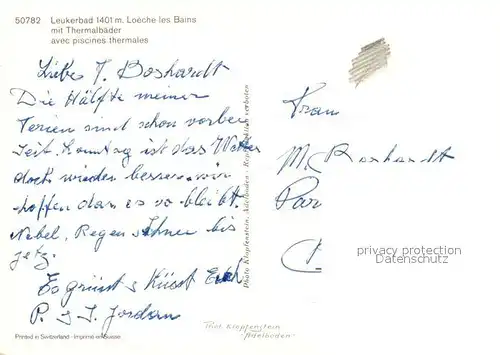 50782 Leukerbad 1401 m. Loèche-les Bains
mit Thermalbäder
avec piscines thermales
Liebes T. Boshardt
Die Hälfte meiner
Ferien sind schon vorbei
Seit Sonntag ist das Wetter
doch wieder besser wir
hoffen das es so bleibt.
Nebel, Regen Schnee bis
jetz.
Es grüsst & Küsst Euch
P. & T. Jordan
Printed in Switzerland - Imprimé en Suisse
Photo Klopfenstein, Adelboden - Reproduktion verboten
Frau
M. Boshardt
privacy protection
Phot. Klopfenstein
Adelboden